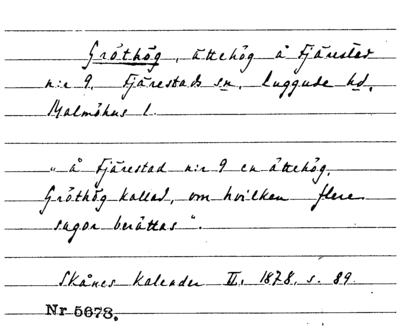 Gröthög, ättehög å Fjärestad
n:r 9. Fjärestads sn. Luggude hd.
Malmöhus l.
"å Fjärestad n:r 9 en ättehög,
Gröthög kallad, om hvilken flere
sagor berättas".
Skånes Kalender II. 1878. s. 89.
Nr 5673.